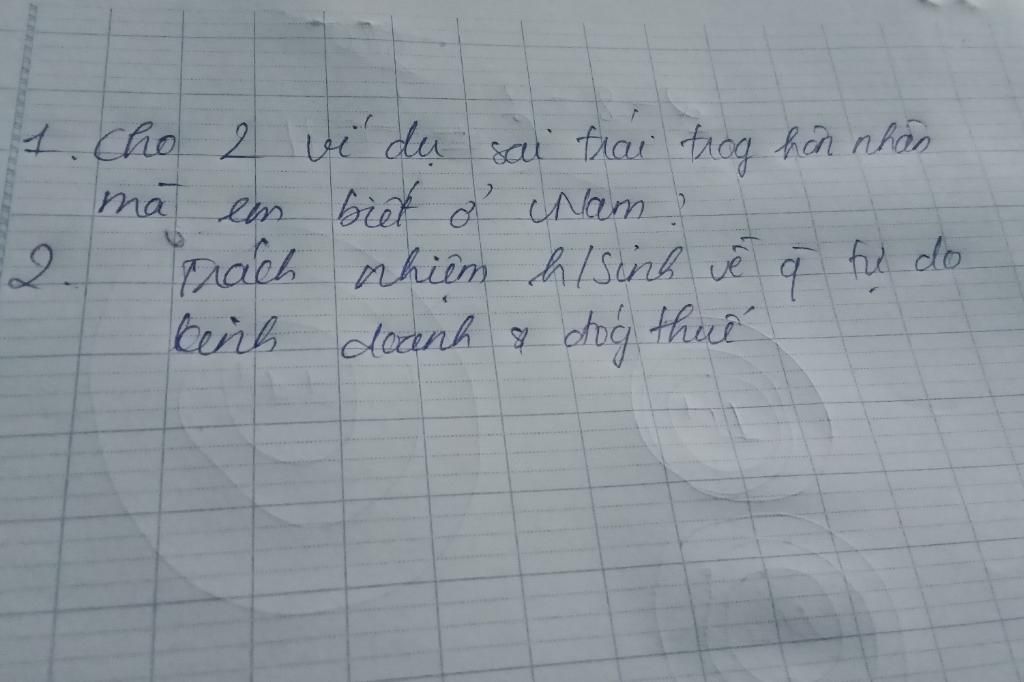 1. Cho 2 ví dụ sai trái trog hôn nhân
mà em biết ở VNam?
2. Trách nhiệm h/sinh về q̄ tự do
kinh doanh & đóg thuế